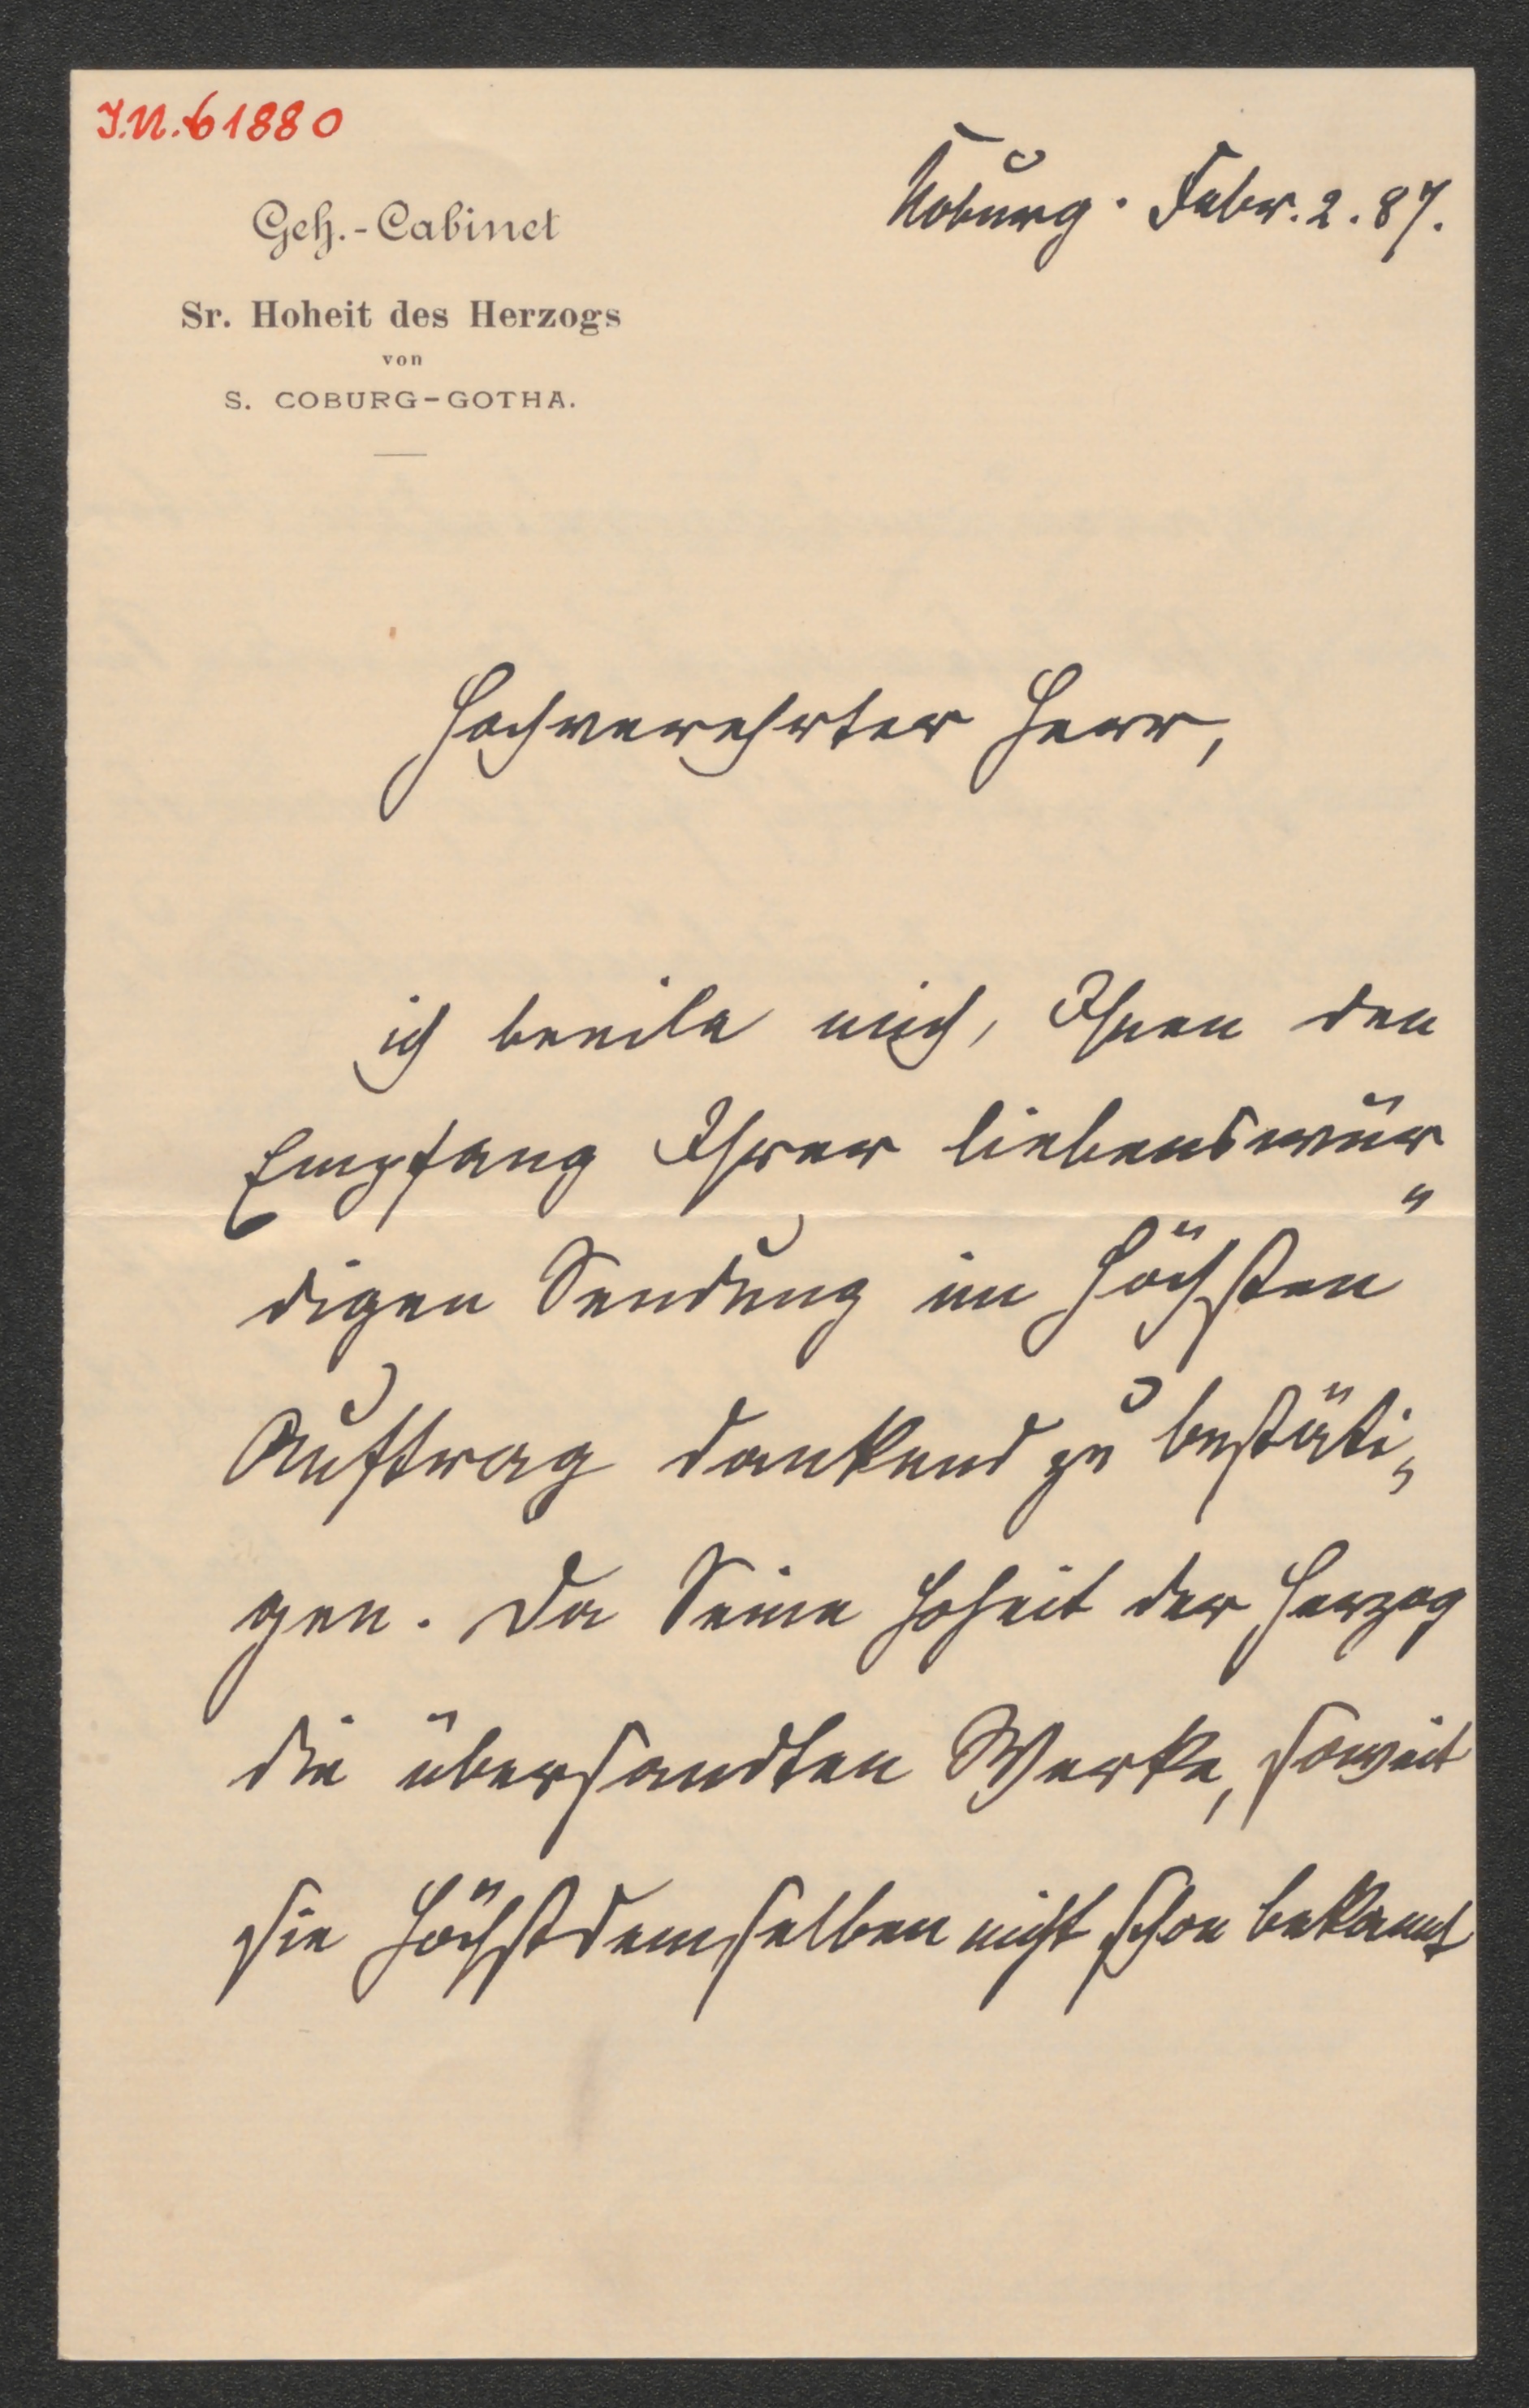 J.N. 61880
Koburg. Febr. 2. 87.
Geh.-Cabinet
Sr. Hoheit des Herzogs
von
S. COBURG-GOTHA.
Hochverehrter Herr,
ich beeile mich, Ihnen den
Empfang Ihrer liebenswür„
digen Sendung im höchsten
Auftrag dankend zu bestäti„
gen. Da Seine Hoheit der Herzog
die übersandten Werke, soweit
sie Höchstdemselben nicht schon bekannt